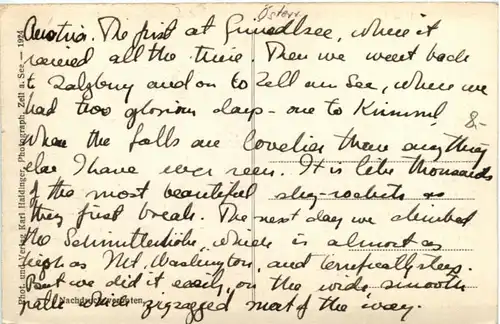 Österr.
Austria. The first at Grundlsee, where it
rained all the time. Then we went back
to Salzburg and on to Zell am See, where we
had two glorious days - one to Krimml,
8-
where the falls are lovelier than anything
else I have ever seen. It is like thousands
of the most beautiful sky-rockets as
they first break. The next day we climbed
the Schmittenhöhe, which is almost as
high as Mt. Washington, and terrifically steep.
But we did it easily, on the wide smooth
path which zigzagged most of the way.
Phot. und Verlag Karl Haldinger, Photograph, Zell a. See. — 1924
Nachdruck verboten.